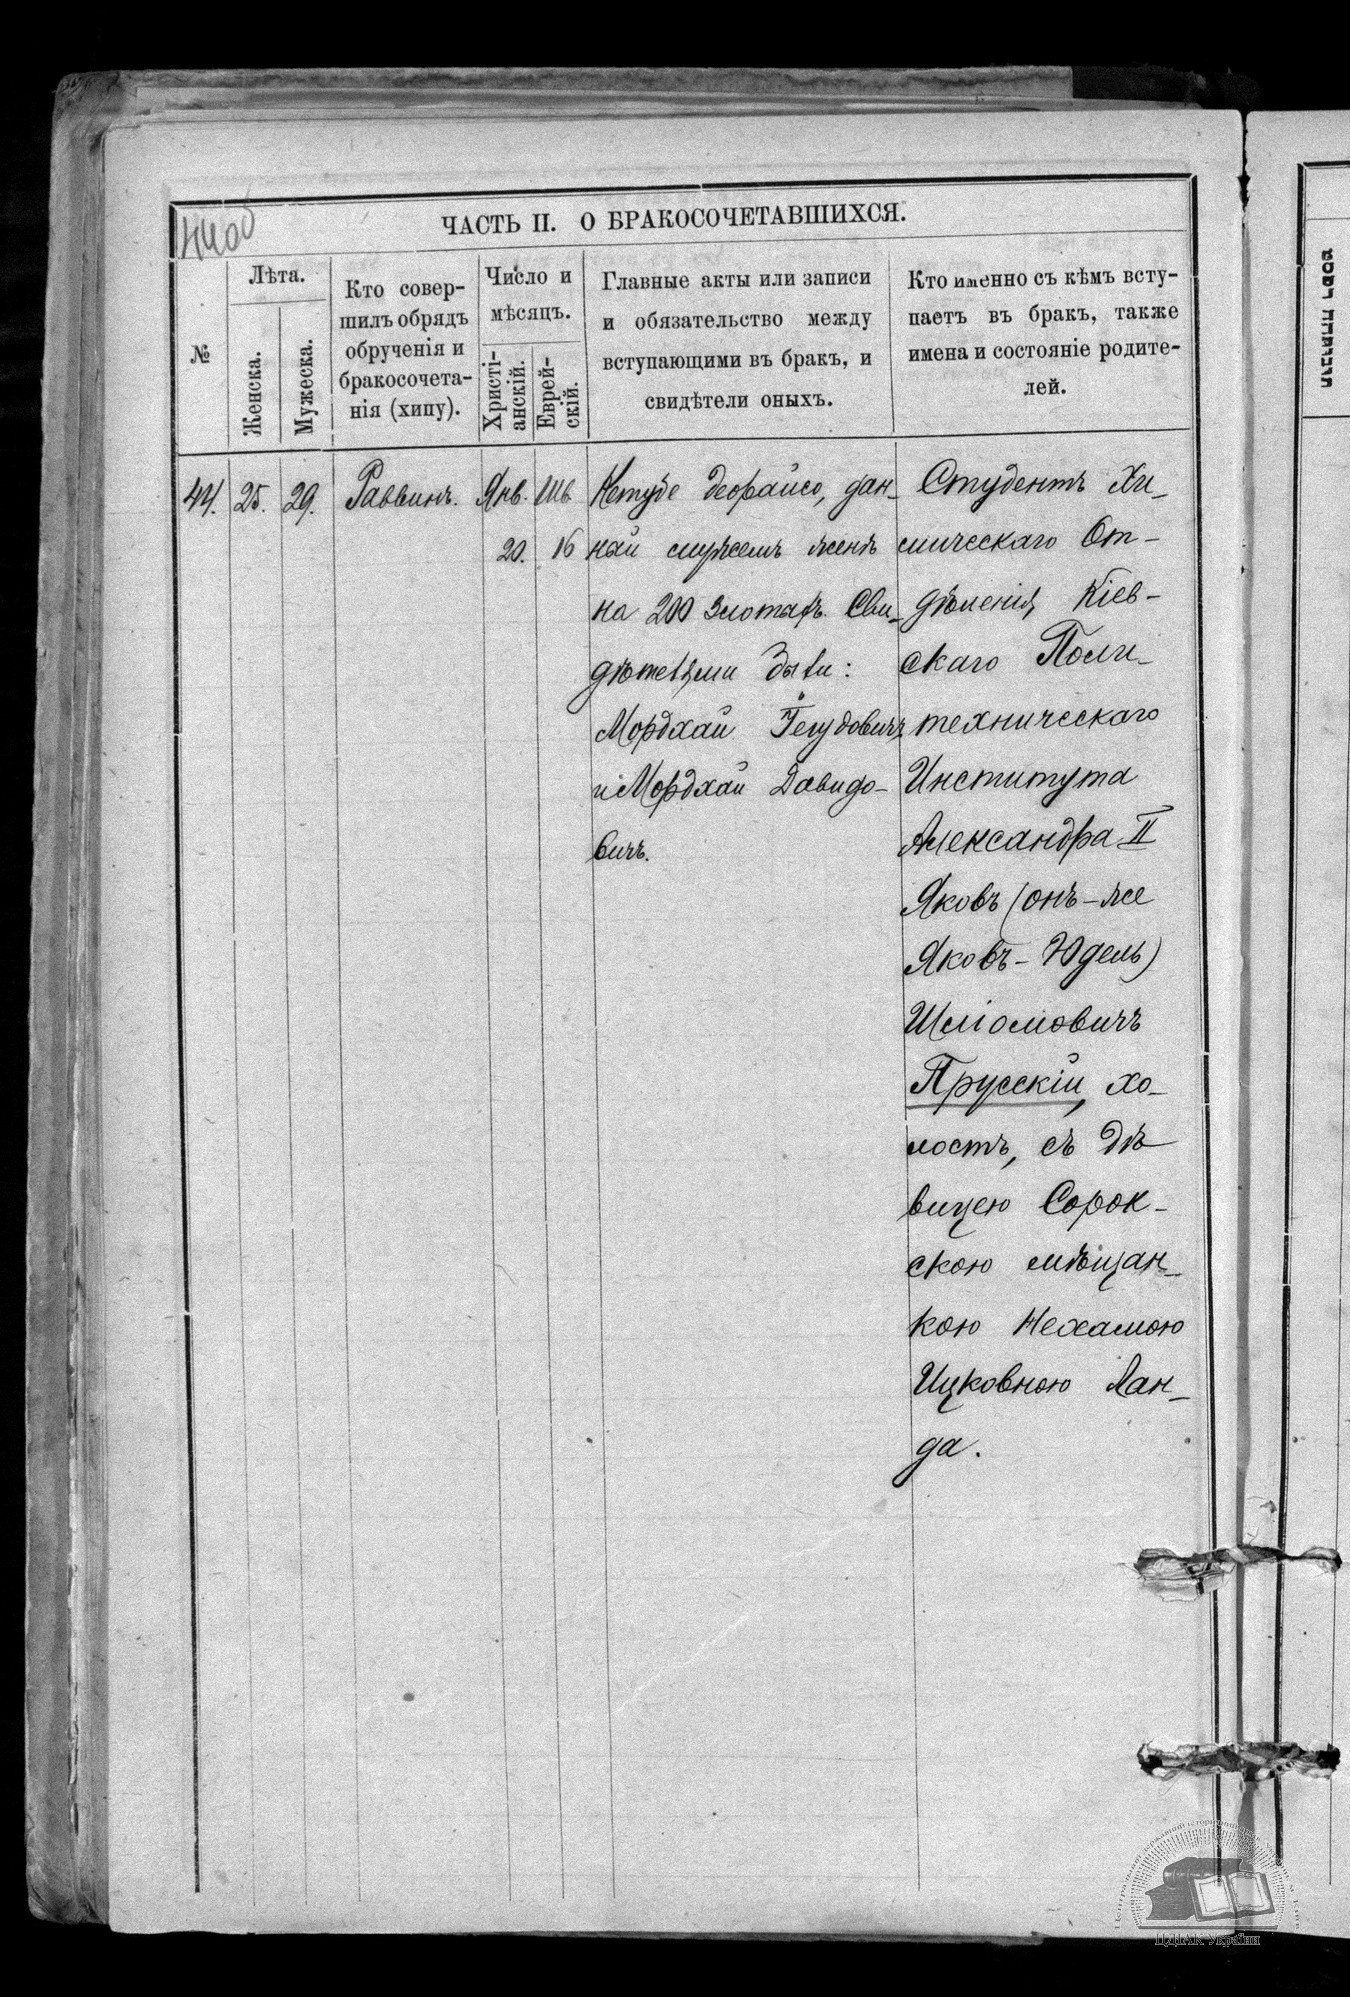 44об
ЧАСТЬ II. О БРАКОСОЧЕТАВШИХСЯ.
№
Лѣта.
Женска.
Мужеска.
Кто совер-
шилъ обрядъ
обрученія и
бракосочета-
нія (хипу).
Число и
мѣсяцъ.
Христі-
анскій.
Еврей-
скій.
Главные акты или записи
и обязательство между
вступающими въ бракъ, и
свидѣтели оныхъ.
Кто именно съ кѣмъ всту-
паетъ въ бракъ, также
имена и состояніе родите-
лей.
44.
25.
29.
Раввинъ.
Янв.
20.
Шв.
16
Кетубе деорайсо, дан-
ной мужемъ женѣ
на 200 злотыхъ. Сви-
дѣтелями были:
Мордхай Гегудовичъ
и Мордхай Давидо-
вичъ.
Студентъ Хи-
мическаго От-
дѣленія Кіев-
скаго Поли-
техническаго
Института
Александра II
Яковъ (онъ-же
Яковъ-Юдель)
Шліомовичъ
Прусскій, хо-
лостъ, съ дѣ
вицею Сорок-
скою мѣщан-
кою Нехамою
Ицковною Лан-
да.
ЦДІАК України